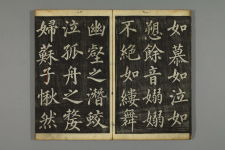 如慕如泣如
愬餘音嫋嫋
不絕如縷舞
幽壑之潛蛟
泣孤舟之嫠
婦蘇子愀然